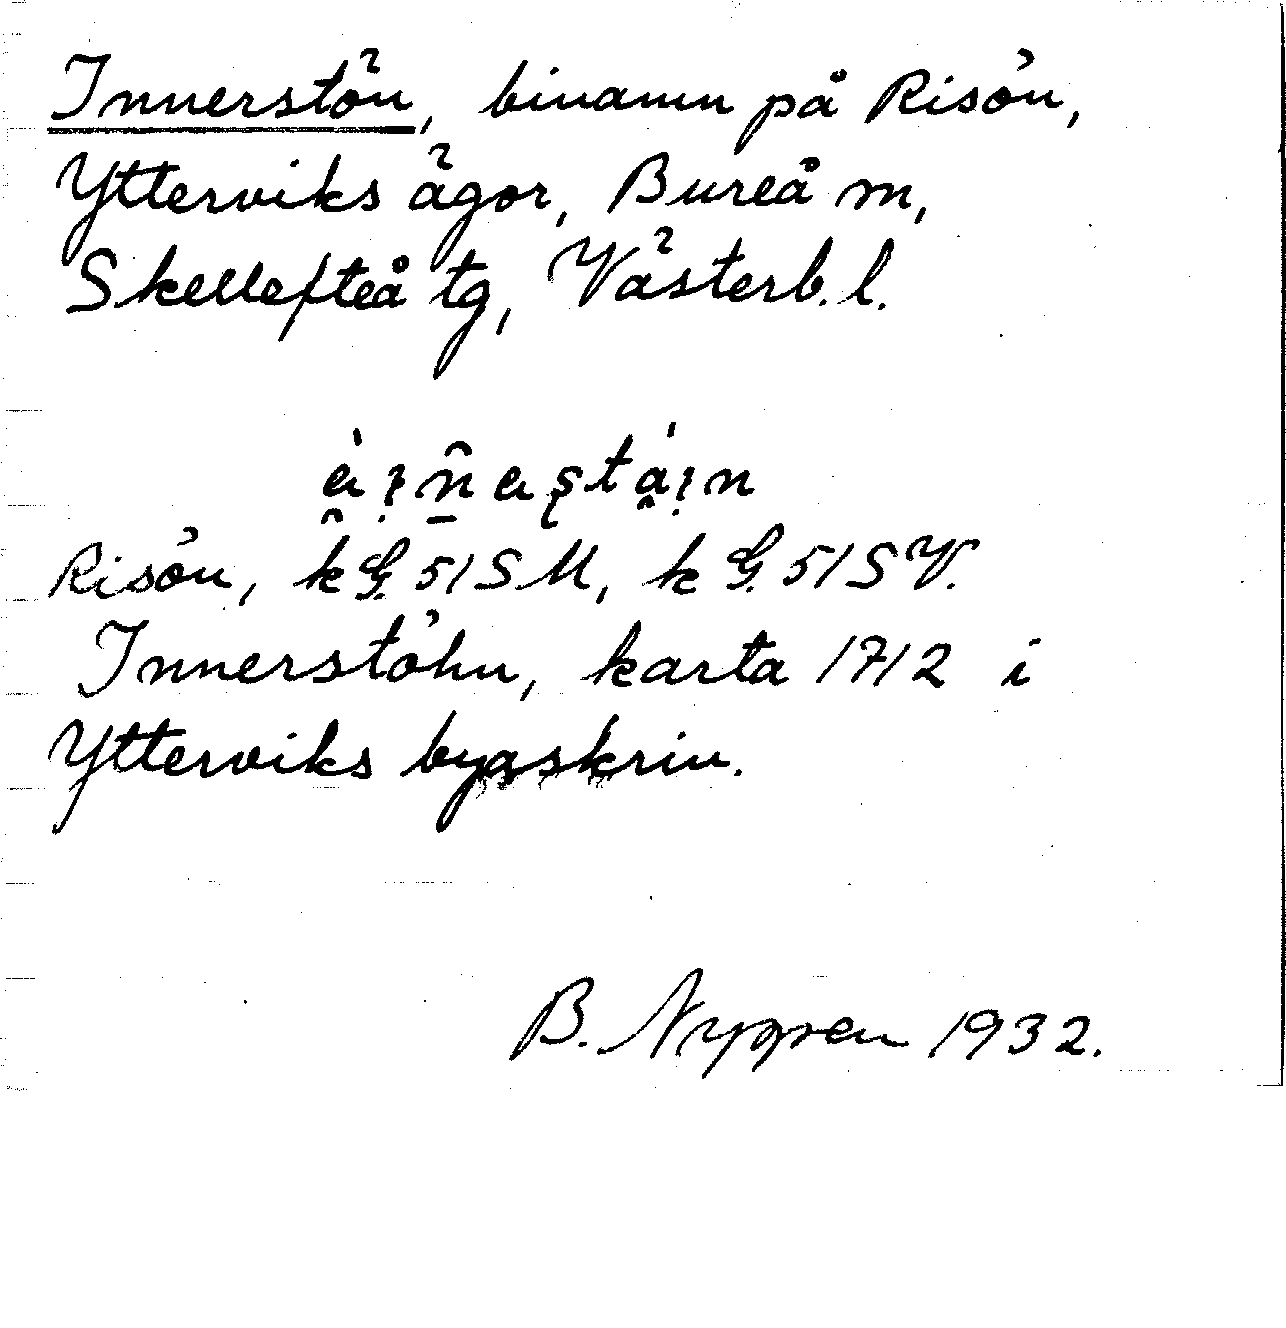 Innerstön, binamn på Risön,
Ytterviks ägor, Bureå m,
Skellefteå tg, Västerb. l.
Risön, k G. 51 SM, k G. 51 SV.
Innerstöhn, karta 1712 i
Ytterviks byaskrin.
B. Nygren 1932.